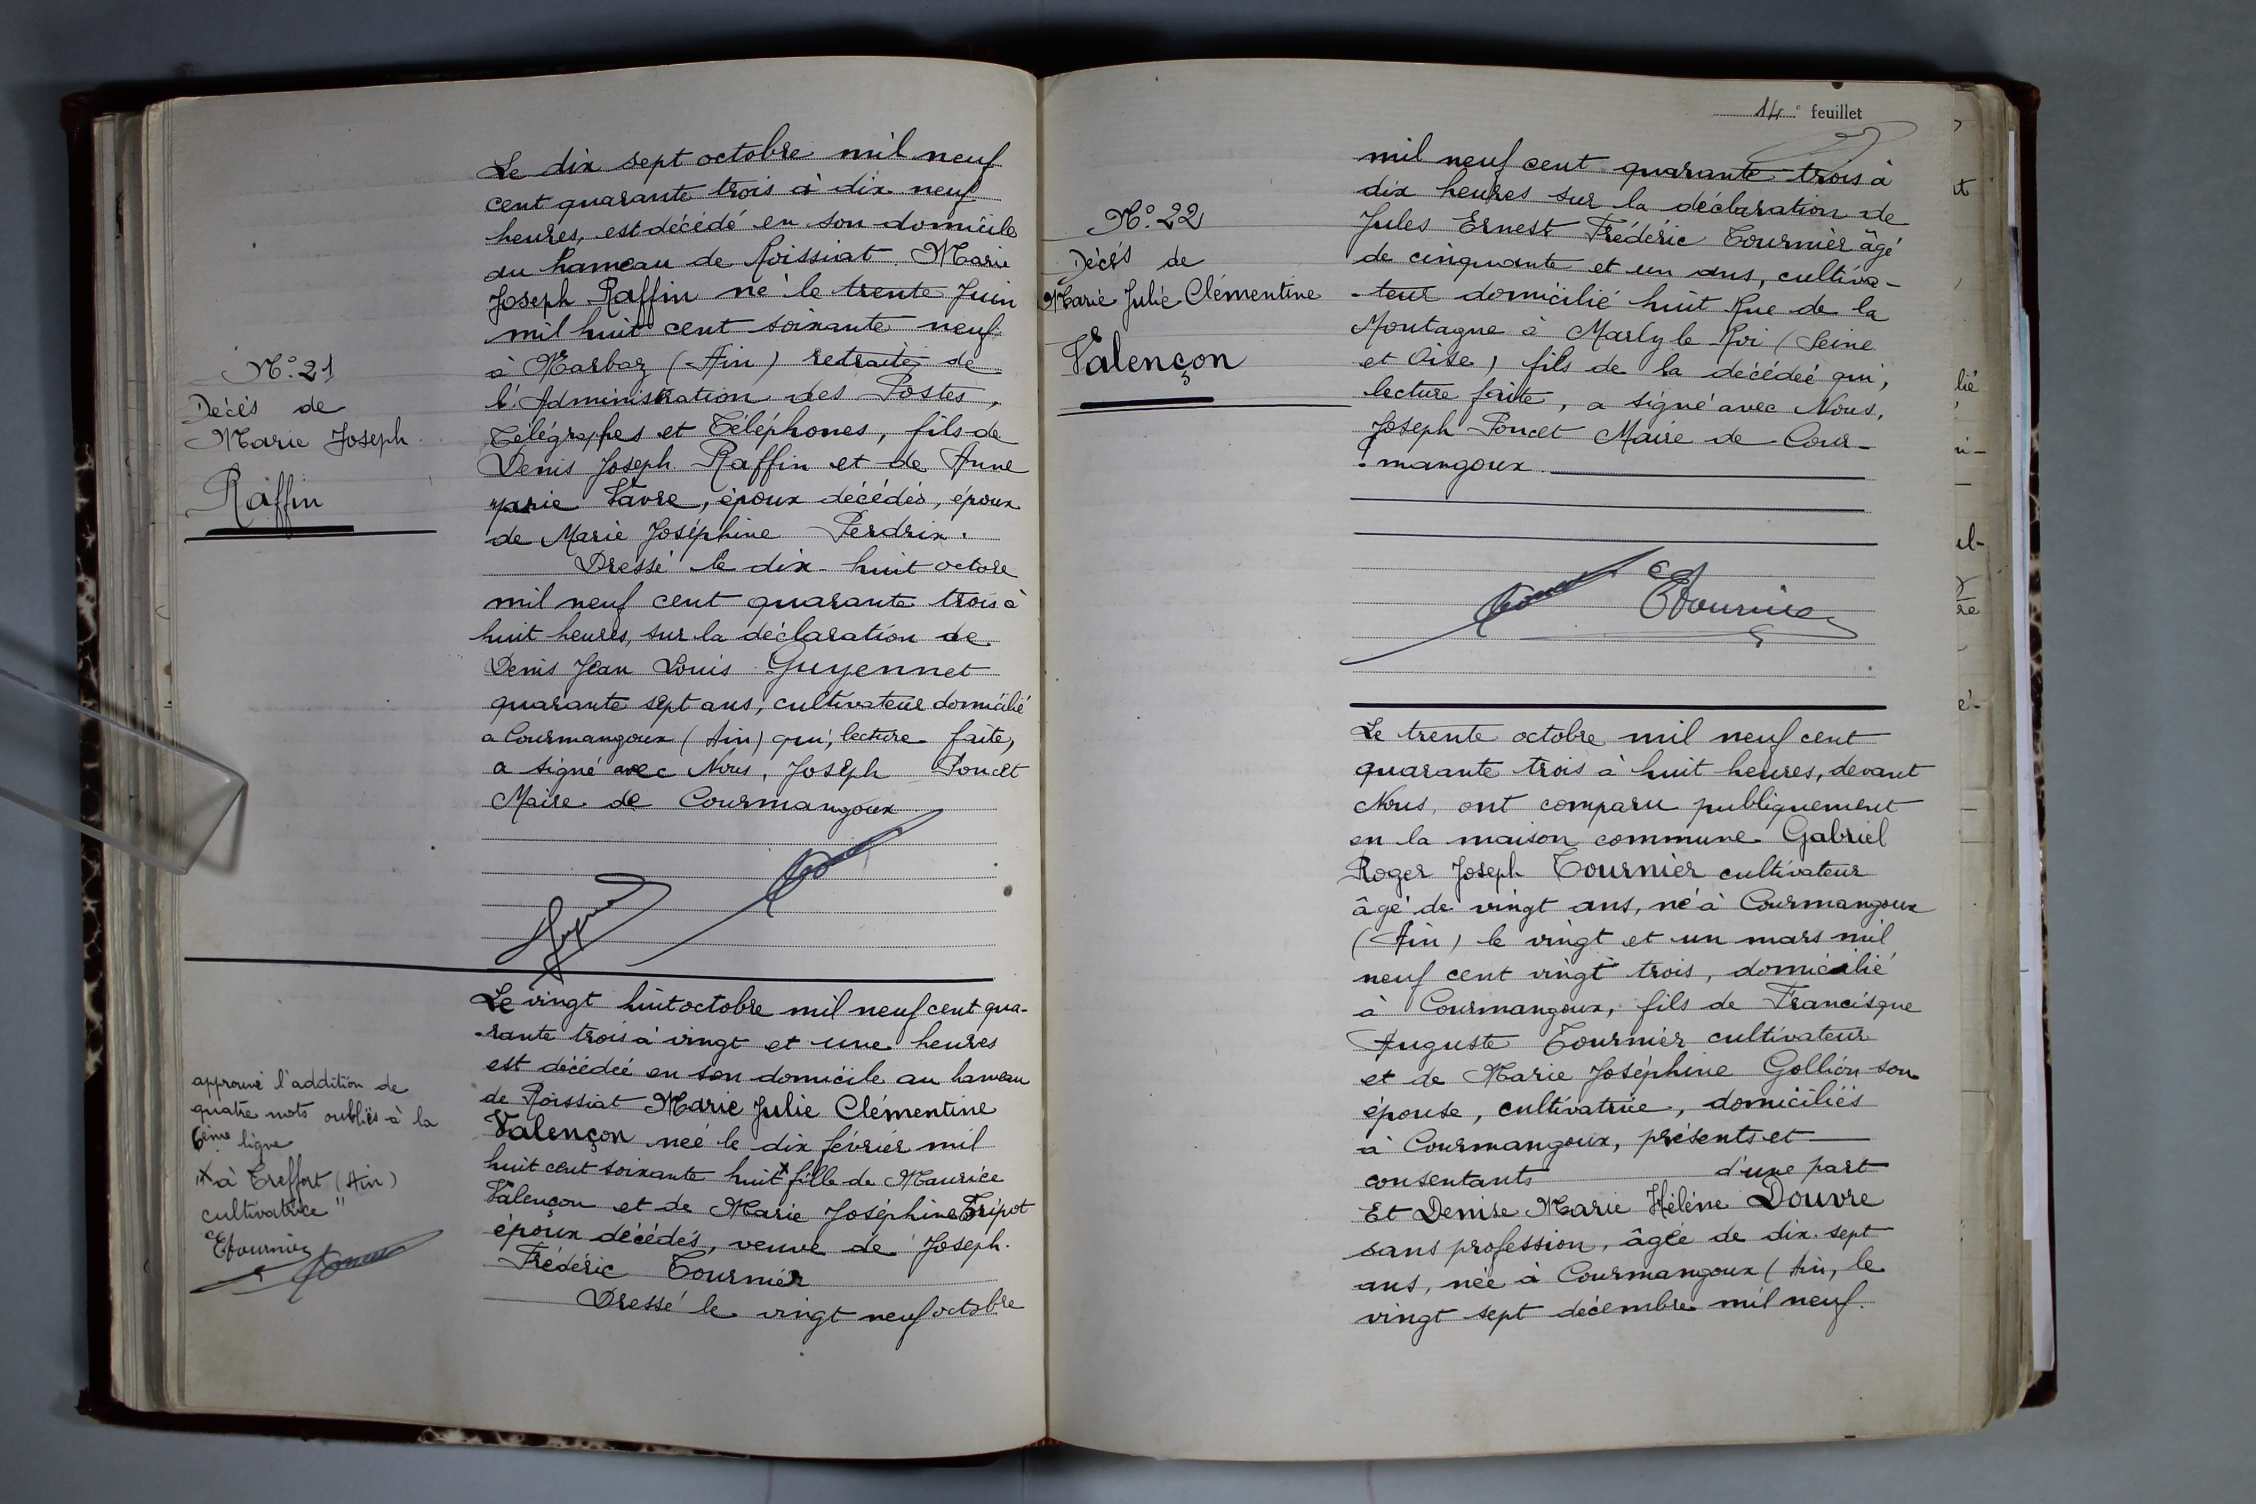 Le dix sept octobre mil neuf
cent quarante trois à dix neuf
heures, est décédé en son domicile
au hameau de Roissiat Marie
Joseph Raffin né le trente Juin
mil huit cent soixante neuf
à Marboz (Ain) retraité de
l'Administration des Postes,
Télégraphes et Téléphones, fils de
Denis Joseph Raffin et de Anne
Marie Favre, époux décédés, époux
de Marie Joséphine Perdrix.
Dressé le dix-huit octore
mil neuf cent quarante trois à
huit heures, sur la déclaration de
Denis Jean Louis Guyennet
quarante sept ans, cultivateur domicilié
a Courmangoux (Ain) qui, lecture faite,
a signé avec Nous, Joseph Poncet
Maire de Courmangoux
N° 21
Décès de
Marie Joseph
Raffin
Le vingt huit octobre mil neuf cent qua-
-rante trois à vingt et une heures
est décédée en son domicile au hameau
de Roissiat Marie Julie Clémentine
Valençon née le dix février mil
huit cent soixante huit x fille de Maurice
Valençon et de Marie Joséphine Fripot
époux décédés, veuve de Joseph.
Frédéric Tournier
Dressé le vingt neuf octobre
approuvé l'addition de
quatre mots oubliés à la
6ème ligne
"x à Treffort (Ain)
cultivatrice"
ETournier
14e feuillet
N° 22
Décès de
Marie Julie Clémentine
Valençon
mil neuf cent quarante trois à
dix heures sur la déclaration de
Jules Ernest Frédéric Tournier âgé
de cinquante et un ans, cultiva-
-teur domicilié huit Rue de la
Montagne à Marly le Roi (Seine
et Oise) fils de la décédée qui,
lecture faite, a signé avec Nous,
Joseph Poncet Maire de Cour-
-mangoux
ETournier
Le trente octobre mil neuf cent
quarante trois à huit heures, devant
Nous, ont comparu publiquement
en la maison commune Gabriel
Roger Joseph Tournier cultivateur
âgé de vingt ans, né à Courmangoux
(Ain) le vingt et un mars mil
neuf cent vingt trois, domicilié
à Courmangoux, fils de Francisque
Auguste Tournier cultivateur
et de Marie Joséphine Gollion son
épouse, cultivatrice, domiciliés
à Courmangoux, présents et
consentants d'une part
Et Denise Marie Hélène Douvre
sans profession, âgée de dix-sept
ans, née à Courmangoux (Ain, le
vingt sept décembre mil neuf.